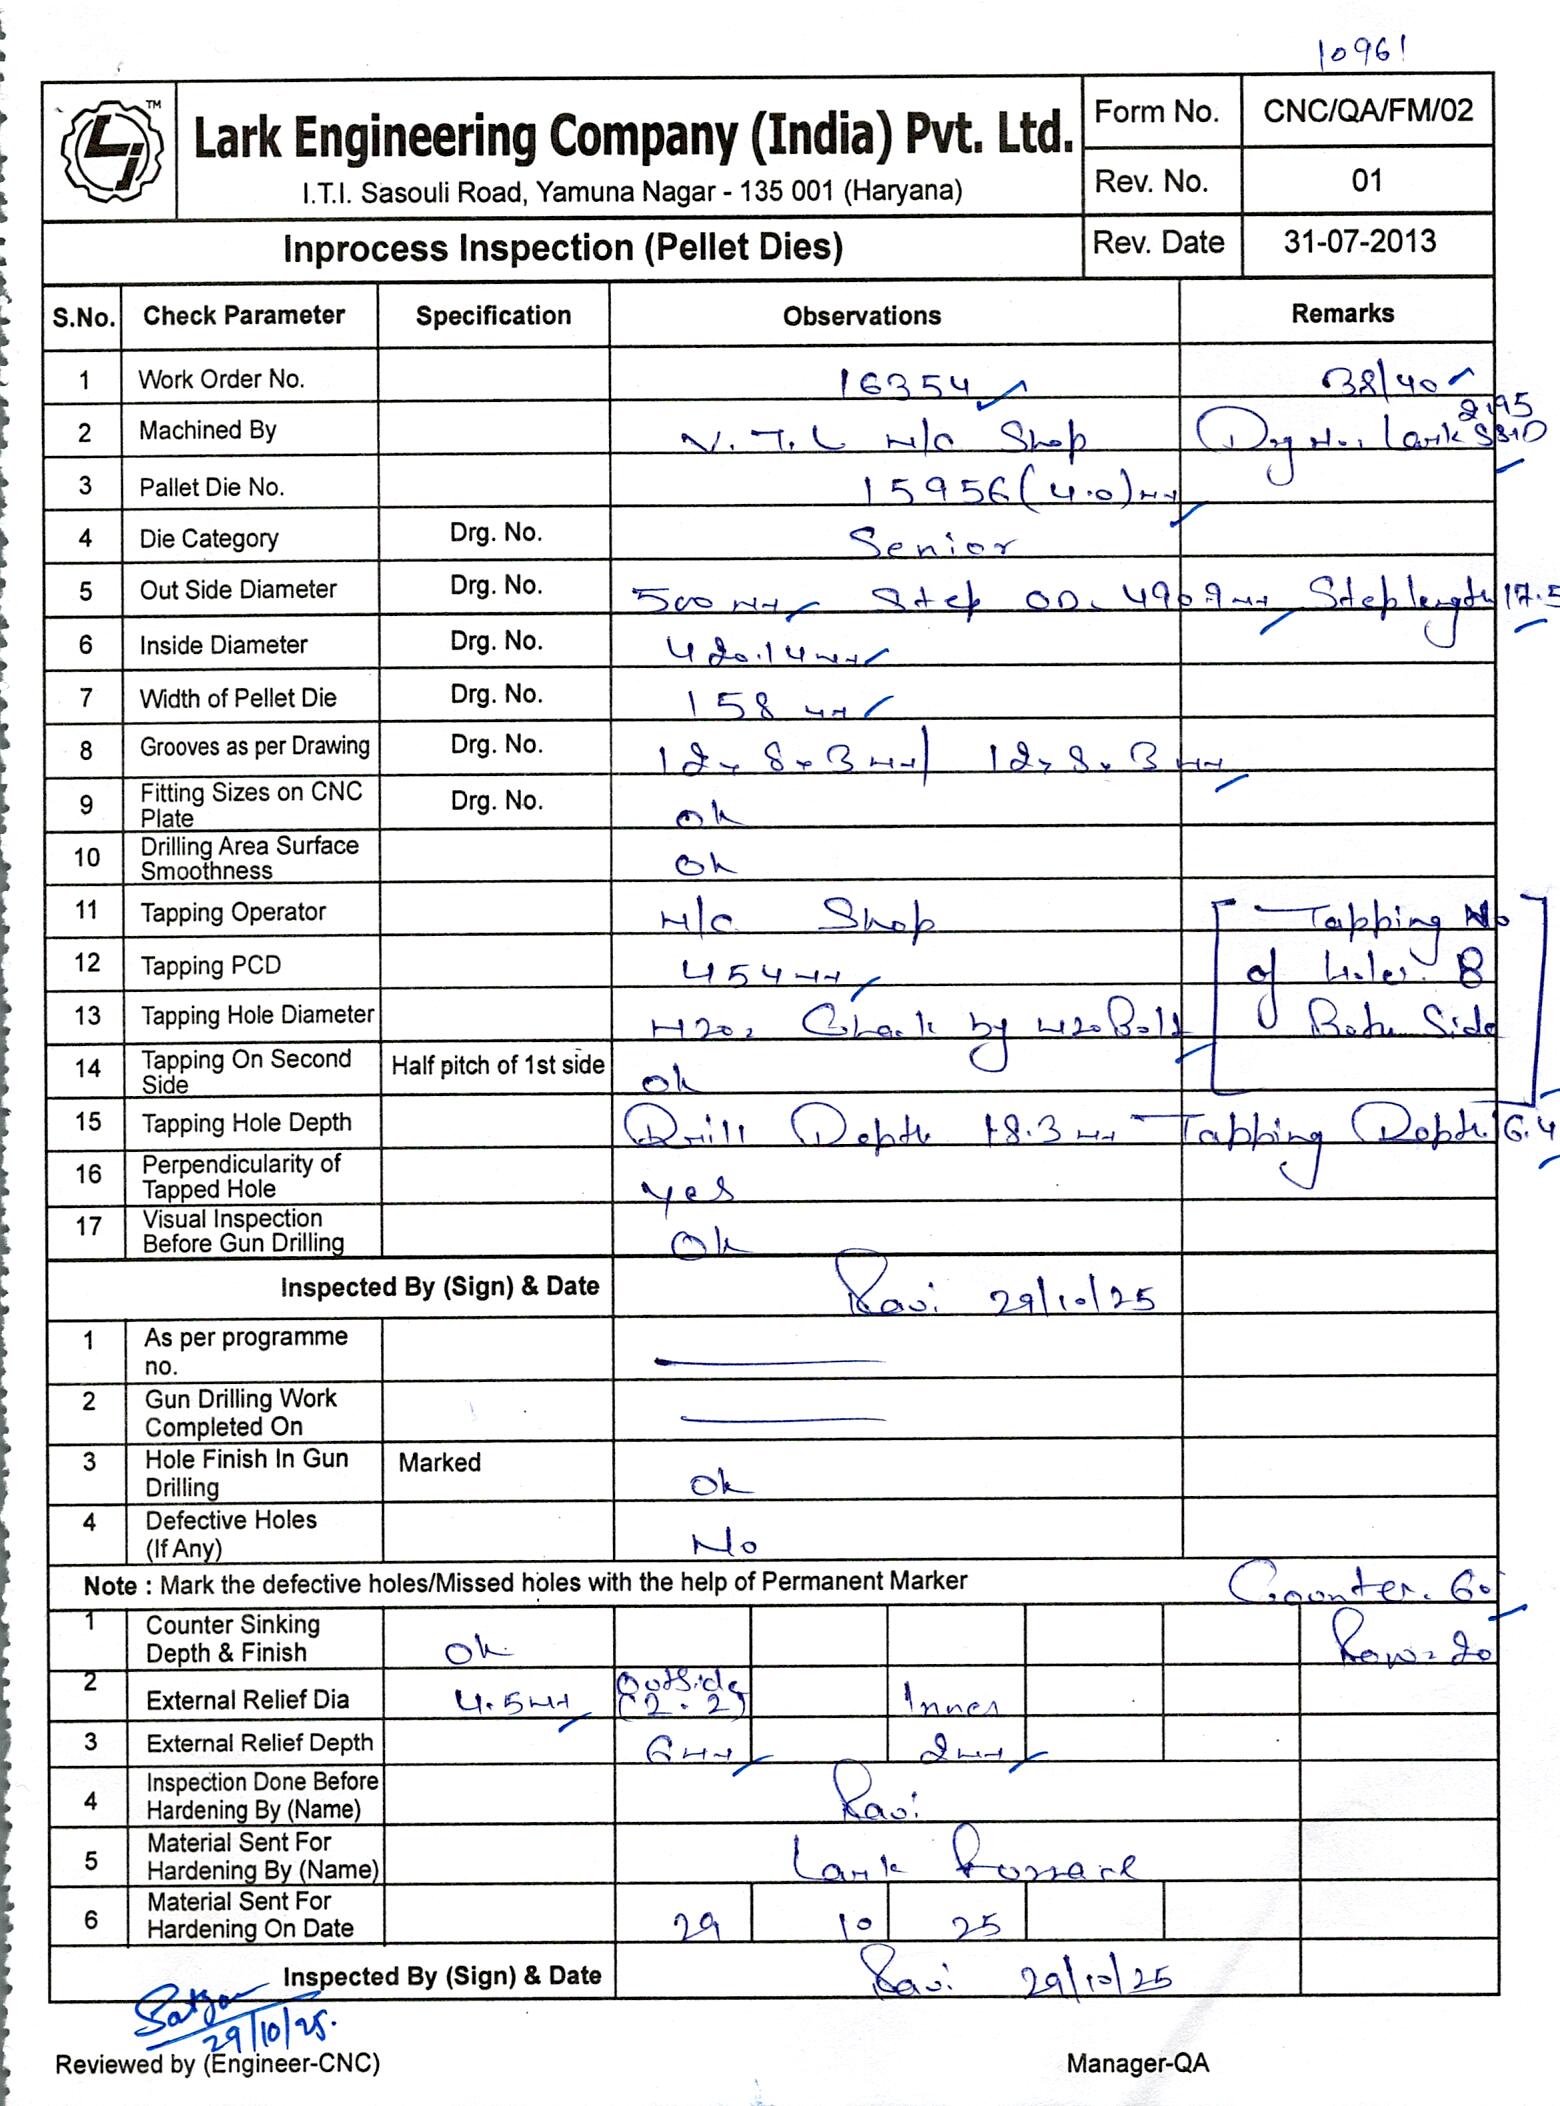 10961
TM
Lark Engineering Company (India) Pvt. Ltd.
I.T.I. Sasouli Road, Yamuna Nagar - 135 001 (Haryana)
Form No. CNC/QA/FM/02
Rev. No. 01
Inprocess Inspection (Pellet Dies) Rev. Date 31-07-2013
S.No. Check Parameter Specification Observations Remarks
1 Work Order No. 16354 38/40
2 Machined By V.T.L M/C Shop Drg No. Lark 2195
3 Pallet Die No. 15956 (4.0) mm
4 Die Category Drg. No. Senior
5 Out Side Diameter Drg. No. 500 mm Step OD. 490.9 mm Step length 17.5
6 Inside Diameter Drg. No. 420.14 mm
7 Width of Pellet Die Drg. No. 158 mm
8 Grooves as per Drawing Drg. No. 12 x 8 x 3 mm / 12 x 8 x 3 mm
9 Fitting Sizes on CNC Plate Drg. No. ok
10 Drilling Area Surface Smoothness ok
11 Tapping Operator M/C Shop Tapping No
12 Tapping PCD 454 mm of holes. 8
13 Tapping Hole Diameter M20, Check by M20 Bolt Both Side
14 Tapping On Second Side Half pitch of 1st side ok
15 Tapping Hole Depth Drill Depth 18.3 mm Tapping Depth 16.4
16 Perpendicularity of Tapped Hole yes
17 Visual Inspection Before Gun Drilling Ok
Inspected By (Sign) & Date Ravi 29/10/25
1 As per programme no.
2 Gun Drilling Work Completed On
3 Hole Finish In Gun Drilling Marked ok
4 Defective Holes (If Any) No
Note : Mark the defective holes/Missed holes with the help of Permanent Marker Counter. 60
1 Counter Sinking Depth & Finish ok Row= 20
2 External Relief Dia 4.5 mm Outside (2.2) Inner
3 External Relief Depth 6 mm 2 mm
4 Inspection Done Before Hardening By (Name) Ravi
5 Material Sent For Hardening By (Name) Lark
6 Material Sent For Hardening On Date 29 10 25
Inspected By (Sign) & Date Ravi 29/10/25
29/10/25.
Reviewed by (Engineer-CNC) Manager-QA